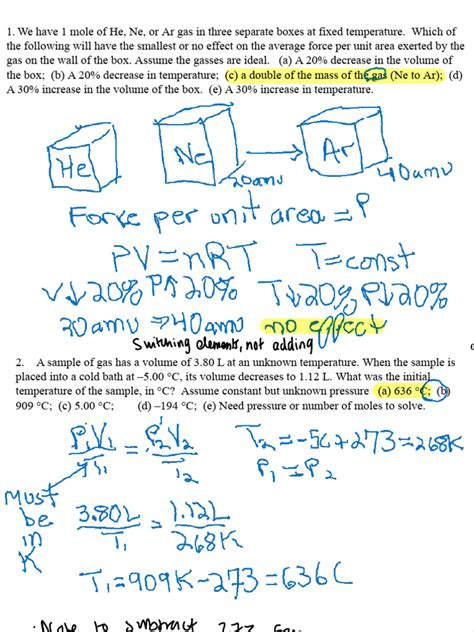 1. We have 1 mole of He, Ne, or Ar gas in three separate boxes at fixed temperature. Which of
the following will have the smallest or no effect on the average force per unit area exerted by the
gas on the wall of the box. Assume the gasses are ideal. (a) A 20% decrease in the volume of
the box; (b) A 20% decrease in temperature; (c) a double of the mass of the gas (Ne to Ar); (d)
A 30% increase in the volume of the box. (e) A 30% increase in temperature.
He Ne → Ar
20amu 40amu
Force per unit area = P
PV=nRT T=const
V↓20% P↑20% T↓20% P↓20%
20amu ⇒ 40amu no effect
Switching elements, not adding
2. A sample of gas has a volume of 3.80 L at an unknown temperature. When the sample is
placed into a cold bath at –5.00 °C, its volume decreases to 1.12 L. What was the initial
temperature of the sample, in °C? Assume constant but unknown pressure (a) 636 °C; (b)
909 °C; (c) 5.00 °C; (d) –194 °C; (e) Need pressure or number of moles to solve.
P₁V₁ = P₂V₂ T₂=-5C+273=268K
T₁ T₂ P₁=P₂
Must
be
in
K
3.80L = 1.12L
T₁ 268K
T₁=909K-273=636C
to subtract 273